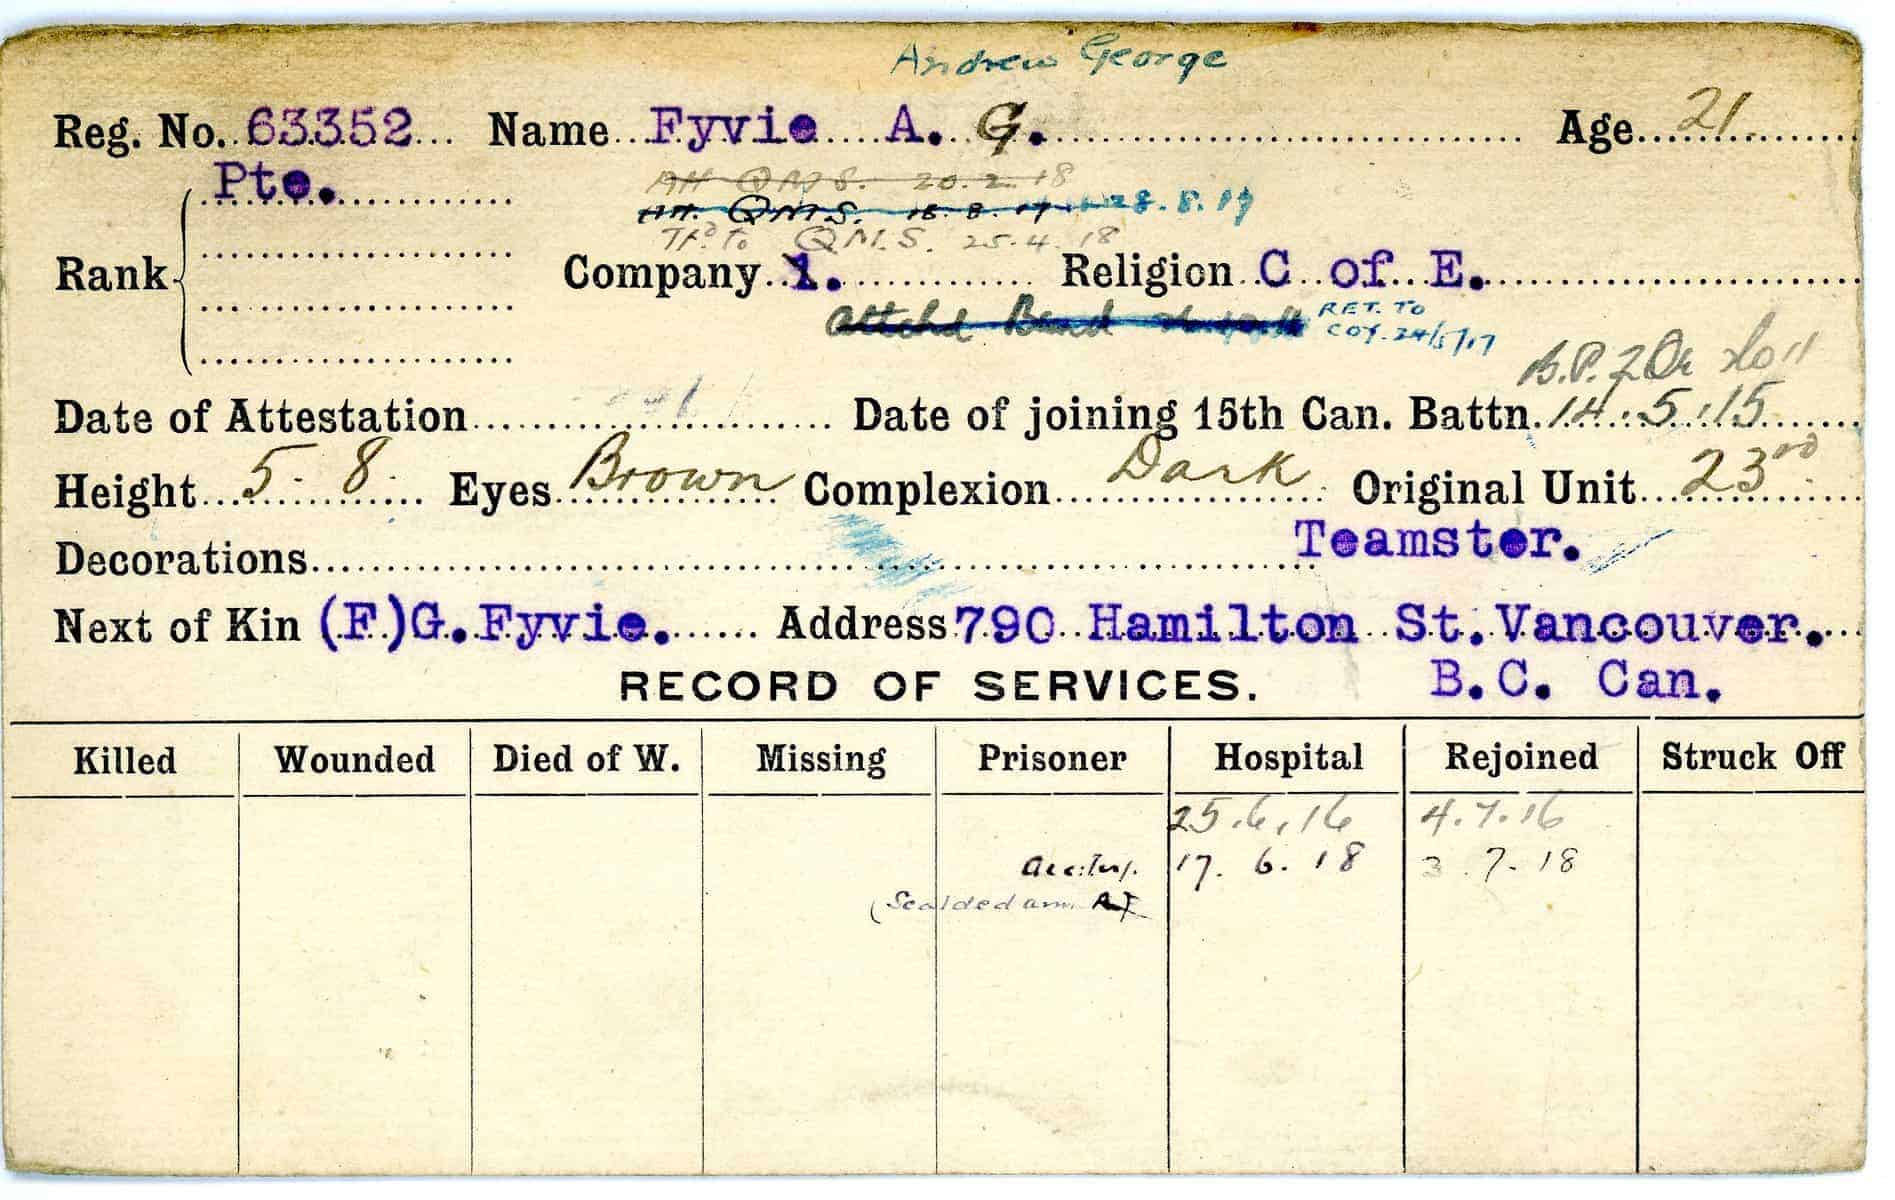 Andrew George
Reg. No. 63352 Name Fyvie A. G. Age 21
Pte.
Att QMS. 20.2.18
Att. QMS. 18.8.17 28.8.17
Tfd to QMS. 25.4.18
Rank Company 1. Religion C of E.
Attchd Band RET. TO
COY. 24/5/17
B.P.
Date of Attestation Date of joining 15th Can. Battn. 14.5.15
Height 5-8 Eyes Brown Complexion Dark Original Unit 23rd
Decorations Teamster.
Next of Kin (F.)G.Fyvie. Address 790 Hamilton St.Vancouver.
B.C. Can.
RECORD OF SERVICES.
Killed Wounded Died of W. Missing Prisoner Hospital Rejoined Struck Off
25.6.16 4.7.16
Acc: Inj. 17. 6. 18 3. 7. 18
(Scalded arm